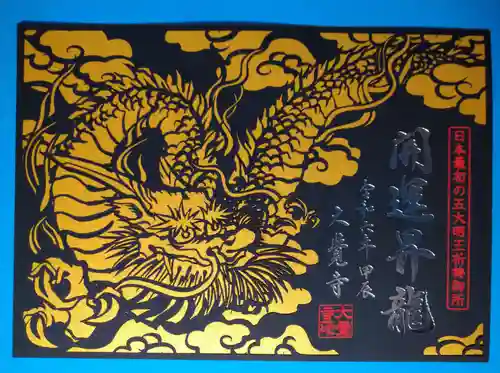 日本最初の五大明王祈祷御所
開運昇龍
令和六年 甲辰
大覚寺